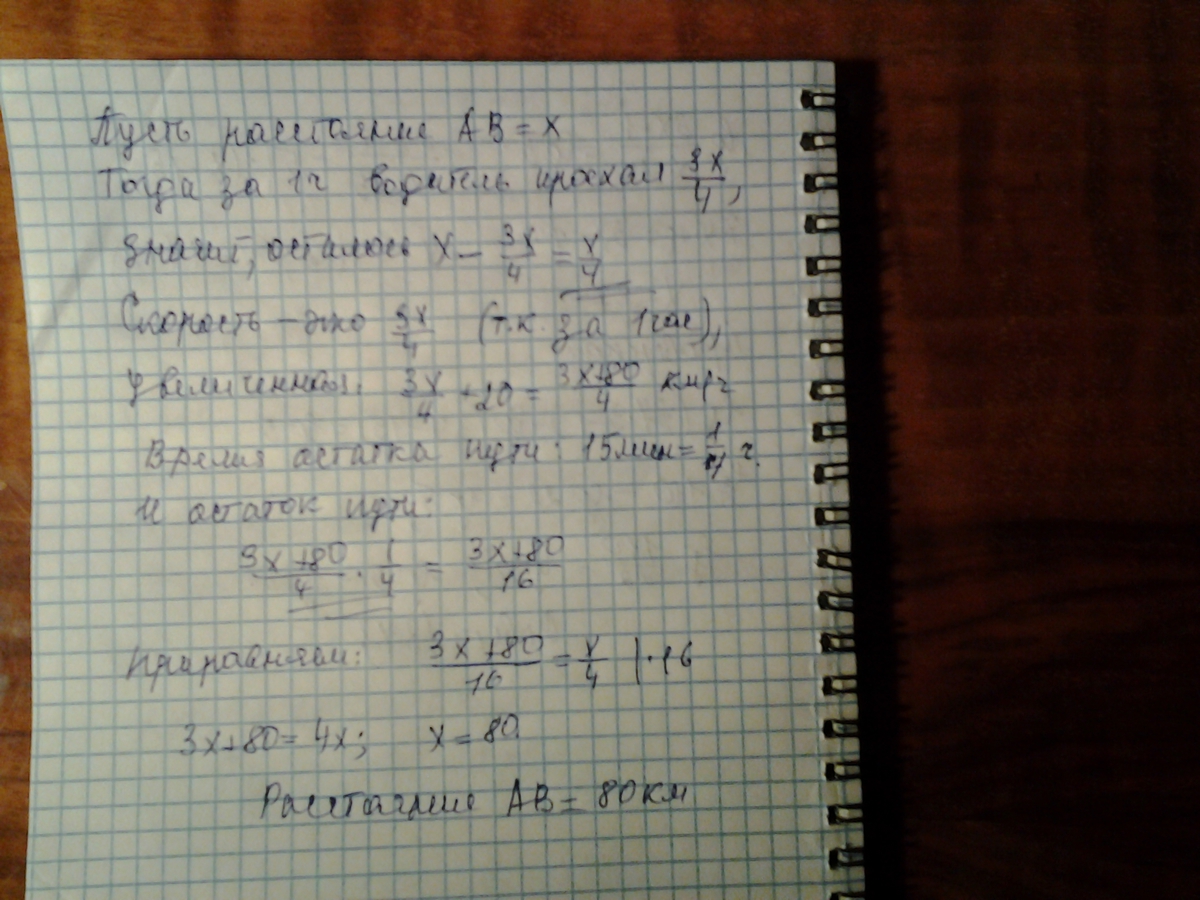 Пусть расстояние AB = x
Тогда за 1ч водитель проехал 3x/4,
значит, осталось x - 3x/4 = x/4
Скорость - это 3x/4 (т.к. за 1час),
увеличенная: 3x/4 + 20 = 3x+80/4 км/ч
Время остатка пути: 15мин = 1/4 ч.
И остаток пути:
3x+80/4 · 1/4 = 3x+80/16
Приравняем: 3x+80/16 = x/4 | ·16
3x+80 = 4x; x = 80
Расстояние AB = 80 км